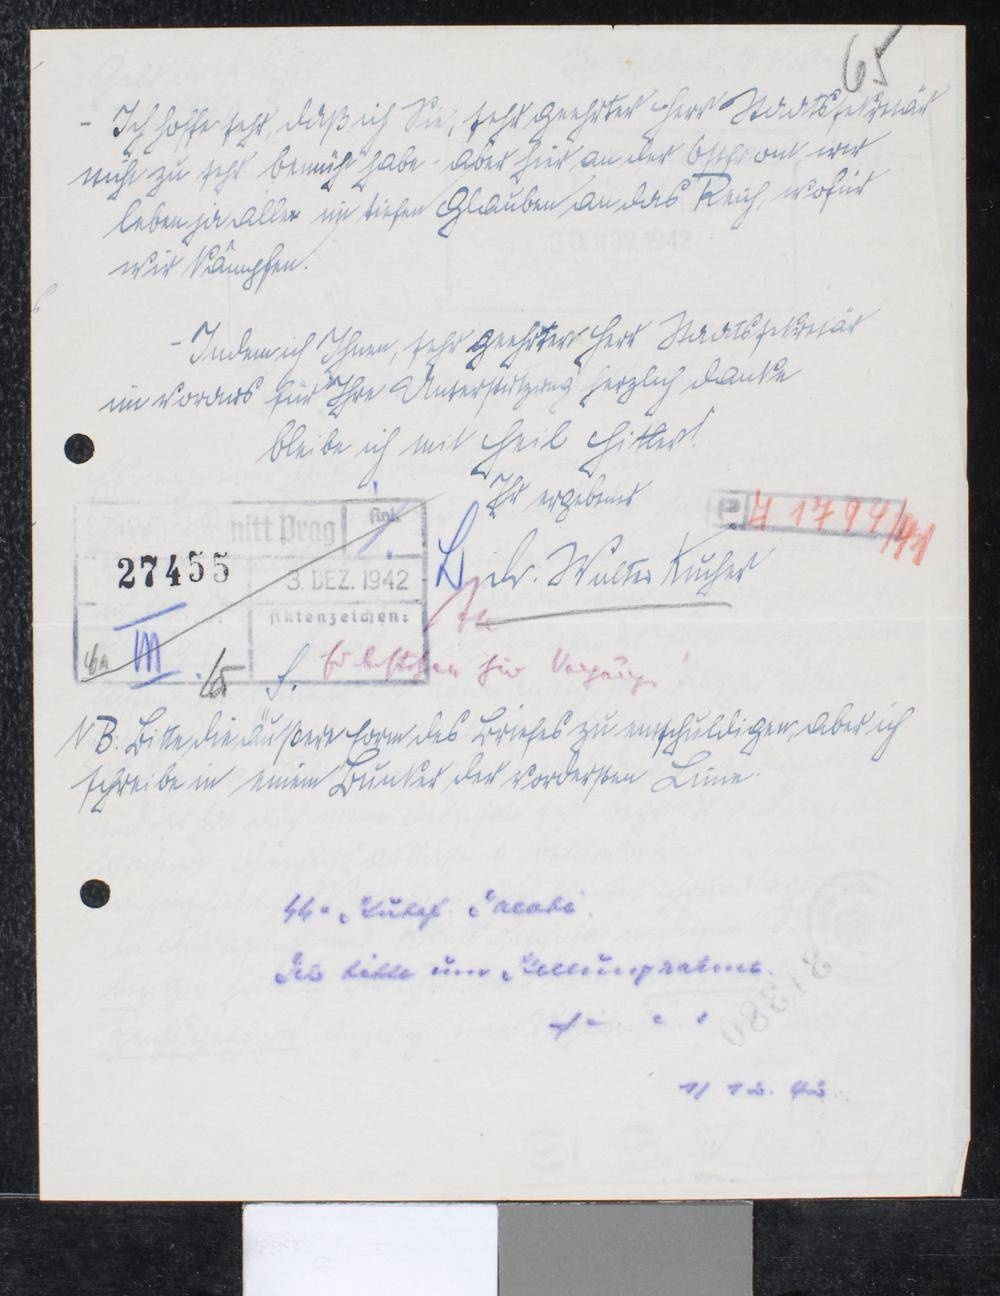 65
- Ich hoffe sehr, daß ich Sie, sehr geehrter Herr Staatssekretär
nicht zu sehr bemüht habe - aber hier an der Ostfront, wir
leben ja alle im tiefen Glauben an das Reich, wofür
wir kämpfen.
- Indem ich Ihnen, sehr geehrter Herr Staatssekretär
im voraus für Ihre Unterstützung herzlich danke
bleibe ich mit Heil Hitler!
Ihr ergebener
Dr. Walter Kucher
P
1799/41
nitt Prag
Anl.
27455
3. DEZ. 1942
Aktenzeichen:
III
65
NB. Bitte die äußere Form des Briefes zu entschuldigen, aber ich
schreibe in einem Bunker der vordersten Linie.
SS- Jacobi.
Ich bitte um Stellungnahme.
1/12.42.